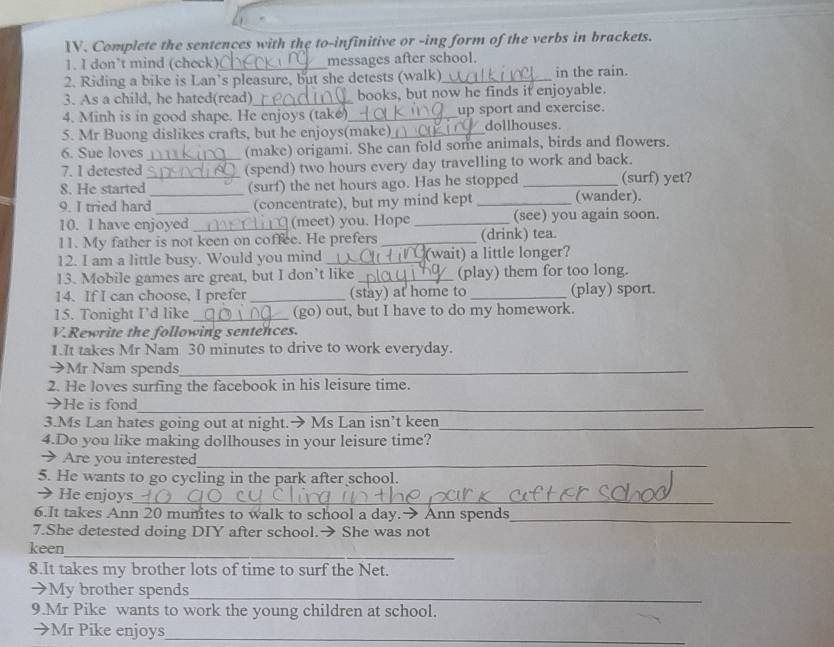 IV. Complete the sentences with the to-infinitive or -ing form of the verbs in brackets.
1. I don't mind (check) checking messages after school.
2. Riding a bike is Lan's pleasure, but she detests (walk) walking in the rain.
3. As a child, he hated(read) reading books, but now he finds it enjoyable.
4. Minh is in good shape. He enjoys (take) taking up sport and exercise.
5. Mr Buong dislikes crafts, but he enjoys(make) making dollhouses.
6. Sue loves making (make) origami. She can fold some animals, birds and flowers.
7. I detested spending (spend) two hours every day travelling to work and back.
8. He started ____ (surf) the net hours ago. Has he stopped ____ (surf) yet?
9. I tried hard ____ (concentrate), but my mind kept ____ (wander).
10. I have enjoyed meeting (meet) you. Hope ____ (see) you again soon.
11. My father is not keen on coffee. He prefers ____ (drink) tea.
12. I am a little busy. Would you mind waiting (wait) a little longer?
13. Mobile games are great, but I don't like playing (play) them for too long.
14. If I can choose, I prefer ____ (stay) at home to ____ (play) sport.
15. Tonight I'd like going (go) out, but I have to do my homework.
V.Rewrite the following sentences.
1.It takes Mr Nam 30 minutes to drive to work everyday.
→Mr Nam spends____
2. He loves surfing the facebook in his leisure time.
→He is fond____
3.Ms Lan hates going out at night.→ Ms Lan isn't keen____
4.Do you like making dollhouses in your leisure time?
→ Are you interested____
5. He wants to go cycling in the park after school.
→ He enjoys to go cycling in the park after school
6.It takes Ann 20 munites to walk to school a day.→ Ann spends____
7.She detested doing DIY after school.→ She was not
keen____
8.It takes my brother lots of time to surf the Net.
→My brother spends____
9.Mr Pike wants to work the young children at school.
→Mr Pike enjoys____